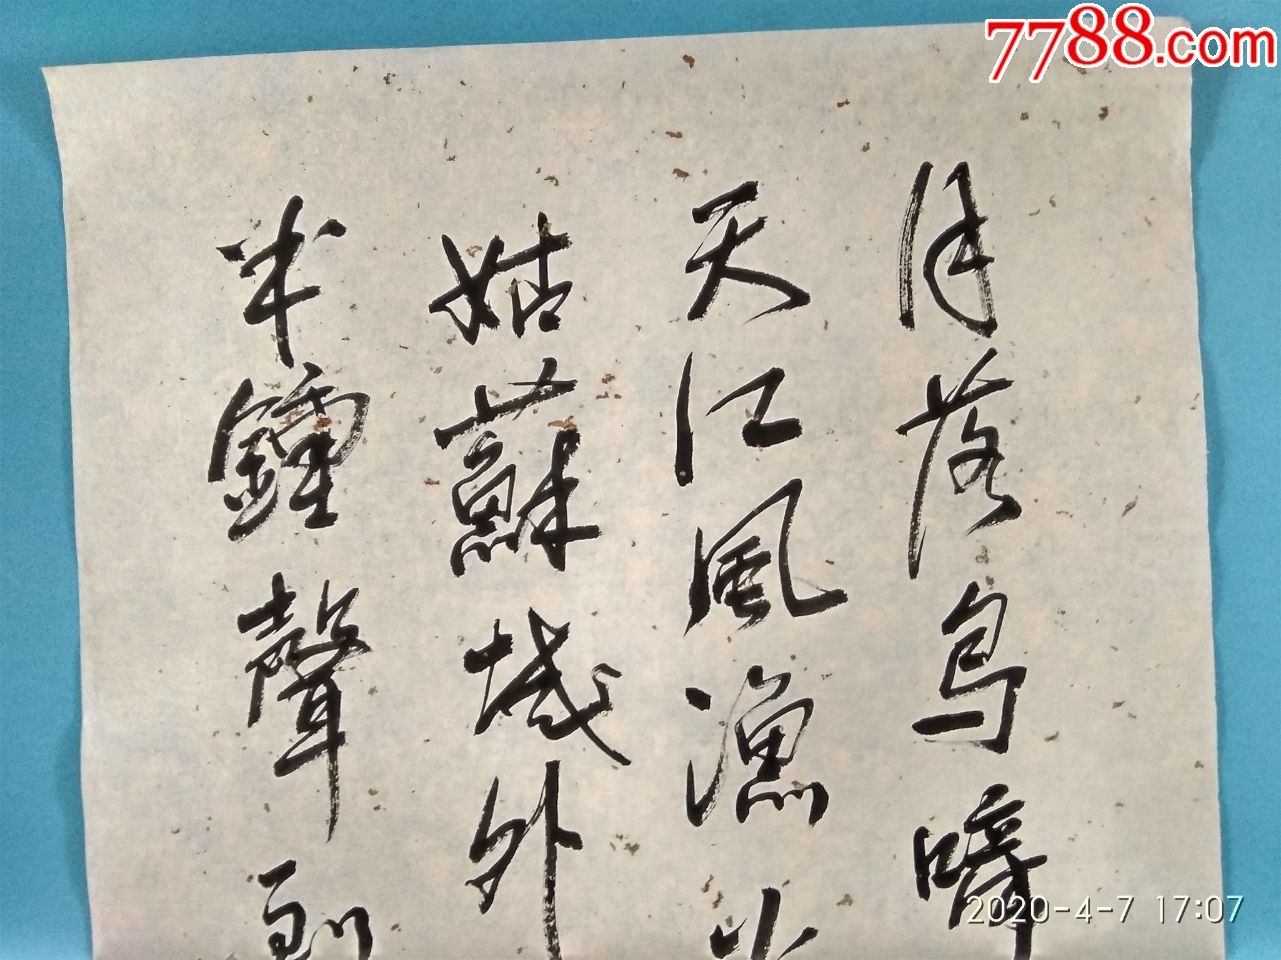 7788.com
月落烏啼
天江風漁火
姑蘇城外
半鐘聲到
2020-4-7 17:07